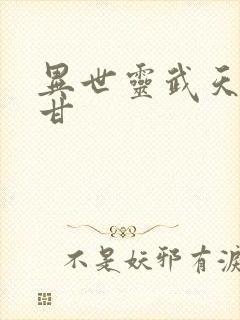 異世靈武天
甘
不是妖邪有淚